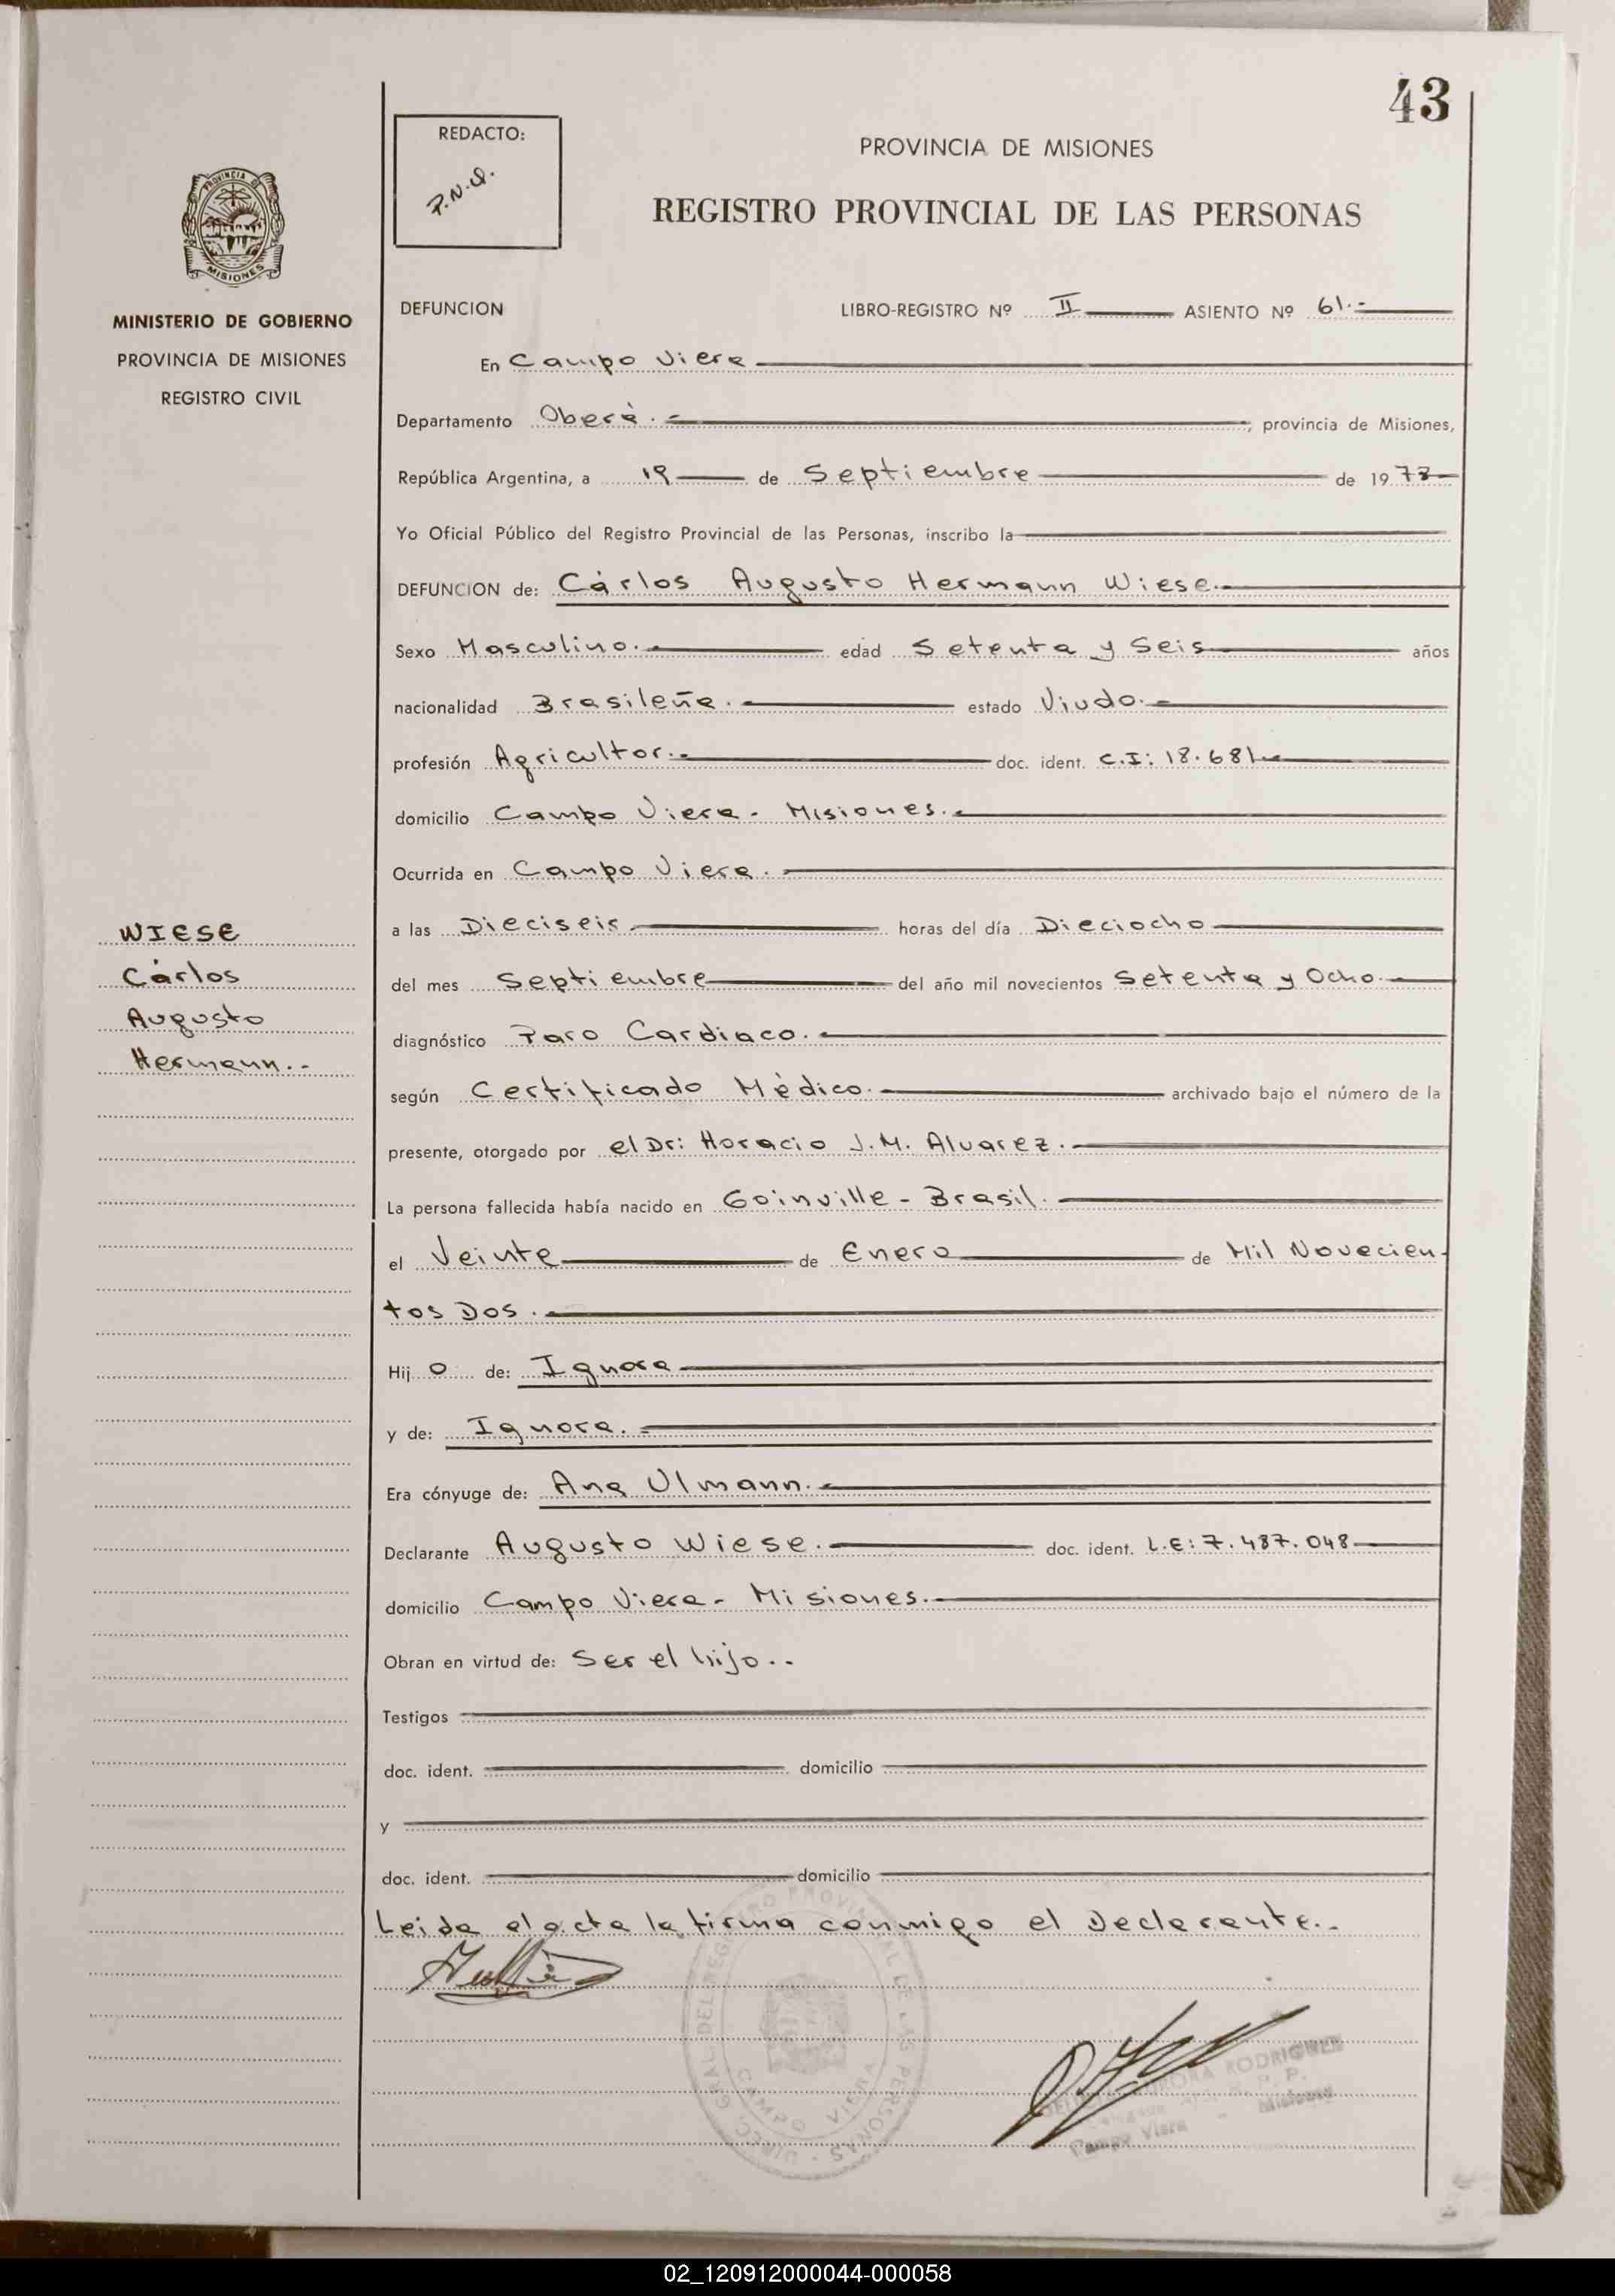 43
REDACTO:
P.N.Q.
PROVINCIA DE MISIONES
REGISTRO PROVINCIAL DE LAS PERSONAS
PROVINCIA DE
MISIONES
MINISTERIO DE GOBIERNO
PROVINCIA DE MISIONES
REGISTRO CIVIL
DEFUNCION LIBRO-REGISTRO Nº II ASIENTO Nº 61.-
En Campo Viera
Departamento Oberà.-, provincia de Misiones,
República Argentina, a 19 de Septiembre de 1978
Yo Oficial Público del Registro Provincial de las Personas, inscribo la
DEFUNCION de: Càrlos Augusto Hermann Wiese.
Sexo Masculino. edad Setenta y Seis años
nacionalidad Brasileña. estado Viudo.-
profesión Agricultor.- doc. ident. C.I: 18.681
domicilio Campo Viera - Misiones.
Ocurrida en Campo Viera.
a las Dieciseis horas del día Dieciocho
del mes Septiembre del año mil novecientos Setenta y Ocho.
diagnóstico Paro Cardiaco.
según Certificado Mèdico. archivado bajo el número de la
presente, otorgado por el Dr: Horacio J.M. Alvarez.
La persona fallecida había nacido en Goinville - Brasil.
el Veinte de Enero de Mil Novecien-
tos Dos.
Hijo de: Ignora
y de: Ignora.
Era cónyuge de: Ana Ulmann.
Declarante Augusto Wiese. doc. ident. L.E: 7.487.048
domicilio Campo Viera - Misiones.
Obran en virtud de: Ser el hijo..
Testigos
doc. ident. domicilio
y
doc. ident. domicilio
Leida el acta la firma conmigo el Declarante..
WIESE
Càrlos
Augusto
Hermann..
DIREC. GRAL. DEL REGISTRO PROVINCIAL DE LAS PERSONAS
CAMPO VIERA
AURORA RODRIGUEZ
Campo Viera - Misiones
02_120912000044-000058